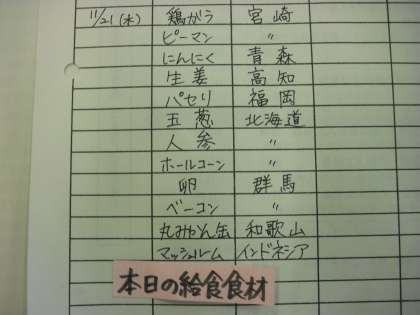 11/21(木) 鶏がら 宮崎
ピーマン 〃
にんにく 青森
生姜 高知
パセリ 福岡
玉葱 北海道
人参 〃
ホールコーン 〃
卵 群馬
ベーコン 〃
丸みかん缶 和歌山
マッシュルーム インドネシア
本日の給食食材